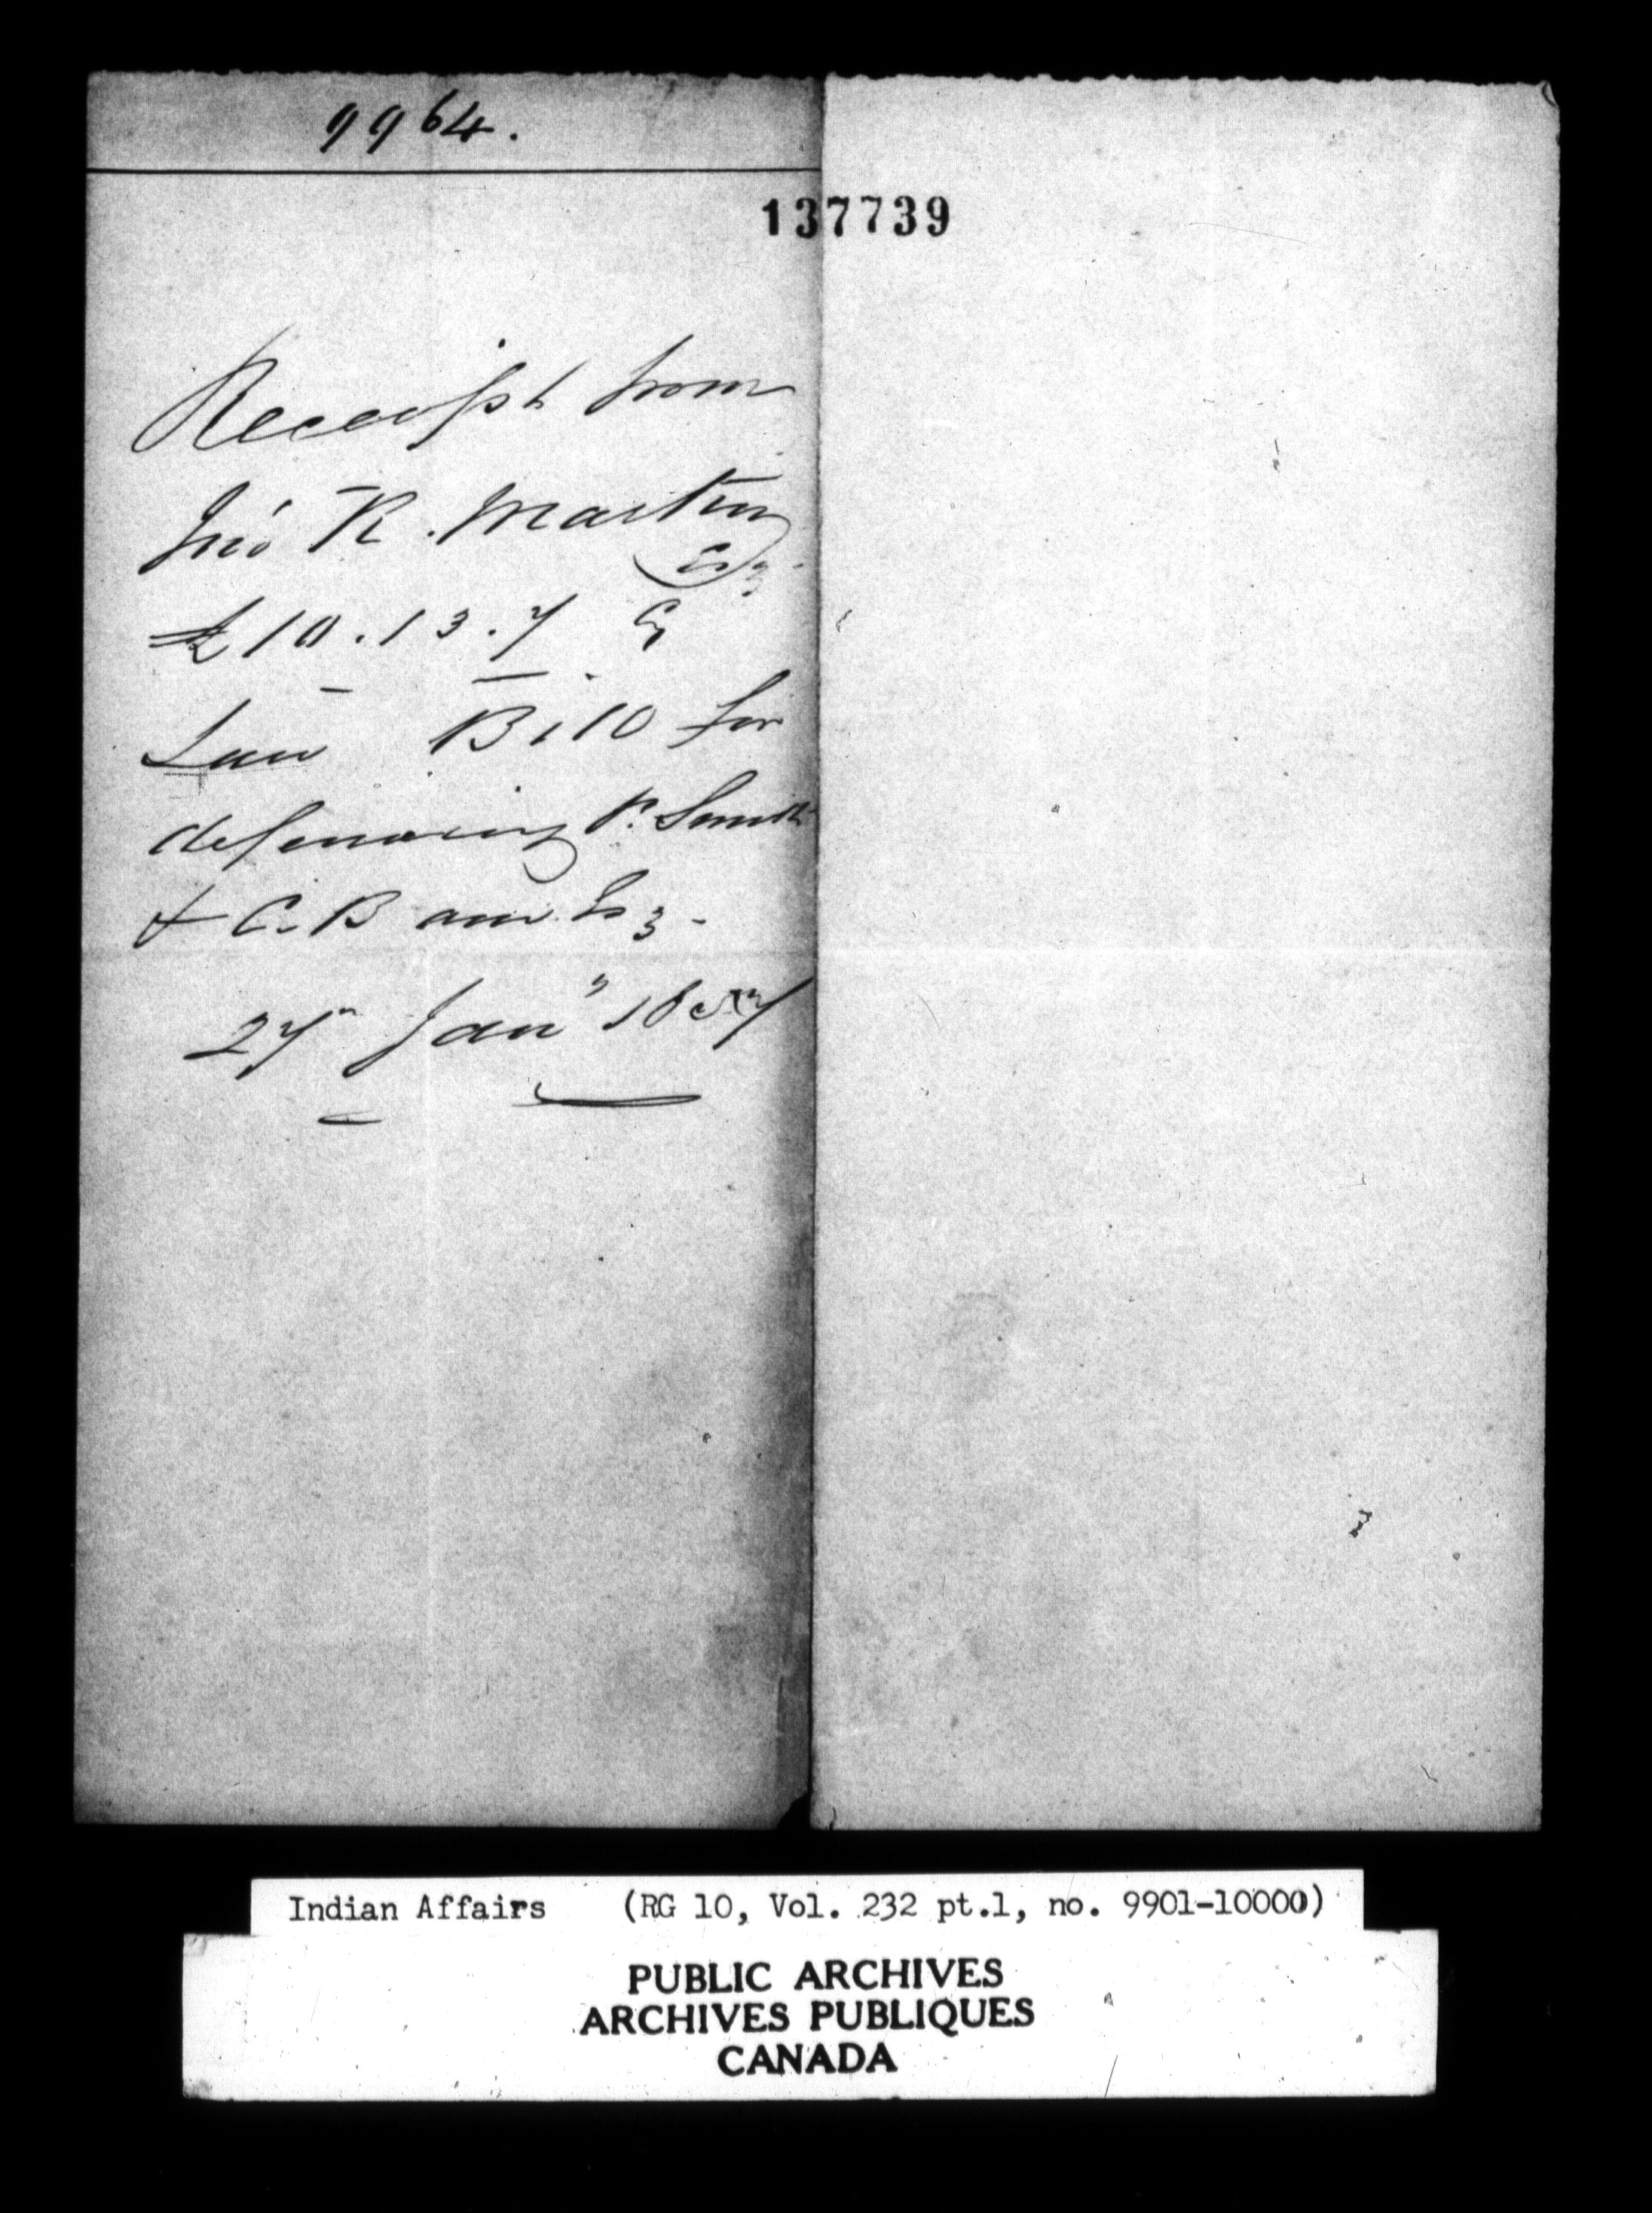 9964.
137739
Receipt from
Jno R. Martin
Esq.
£10.13.7 Cy
Law Bill for
defending P. Smith
& C. B
27 Jany 1857
Indian Affairs (RG 10, Vol. 232 pt.1, no. 9901-10000)
PUBLIC ARCHIVES
ARCHIVES PUBLIQUES
CANADA